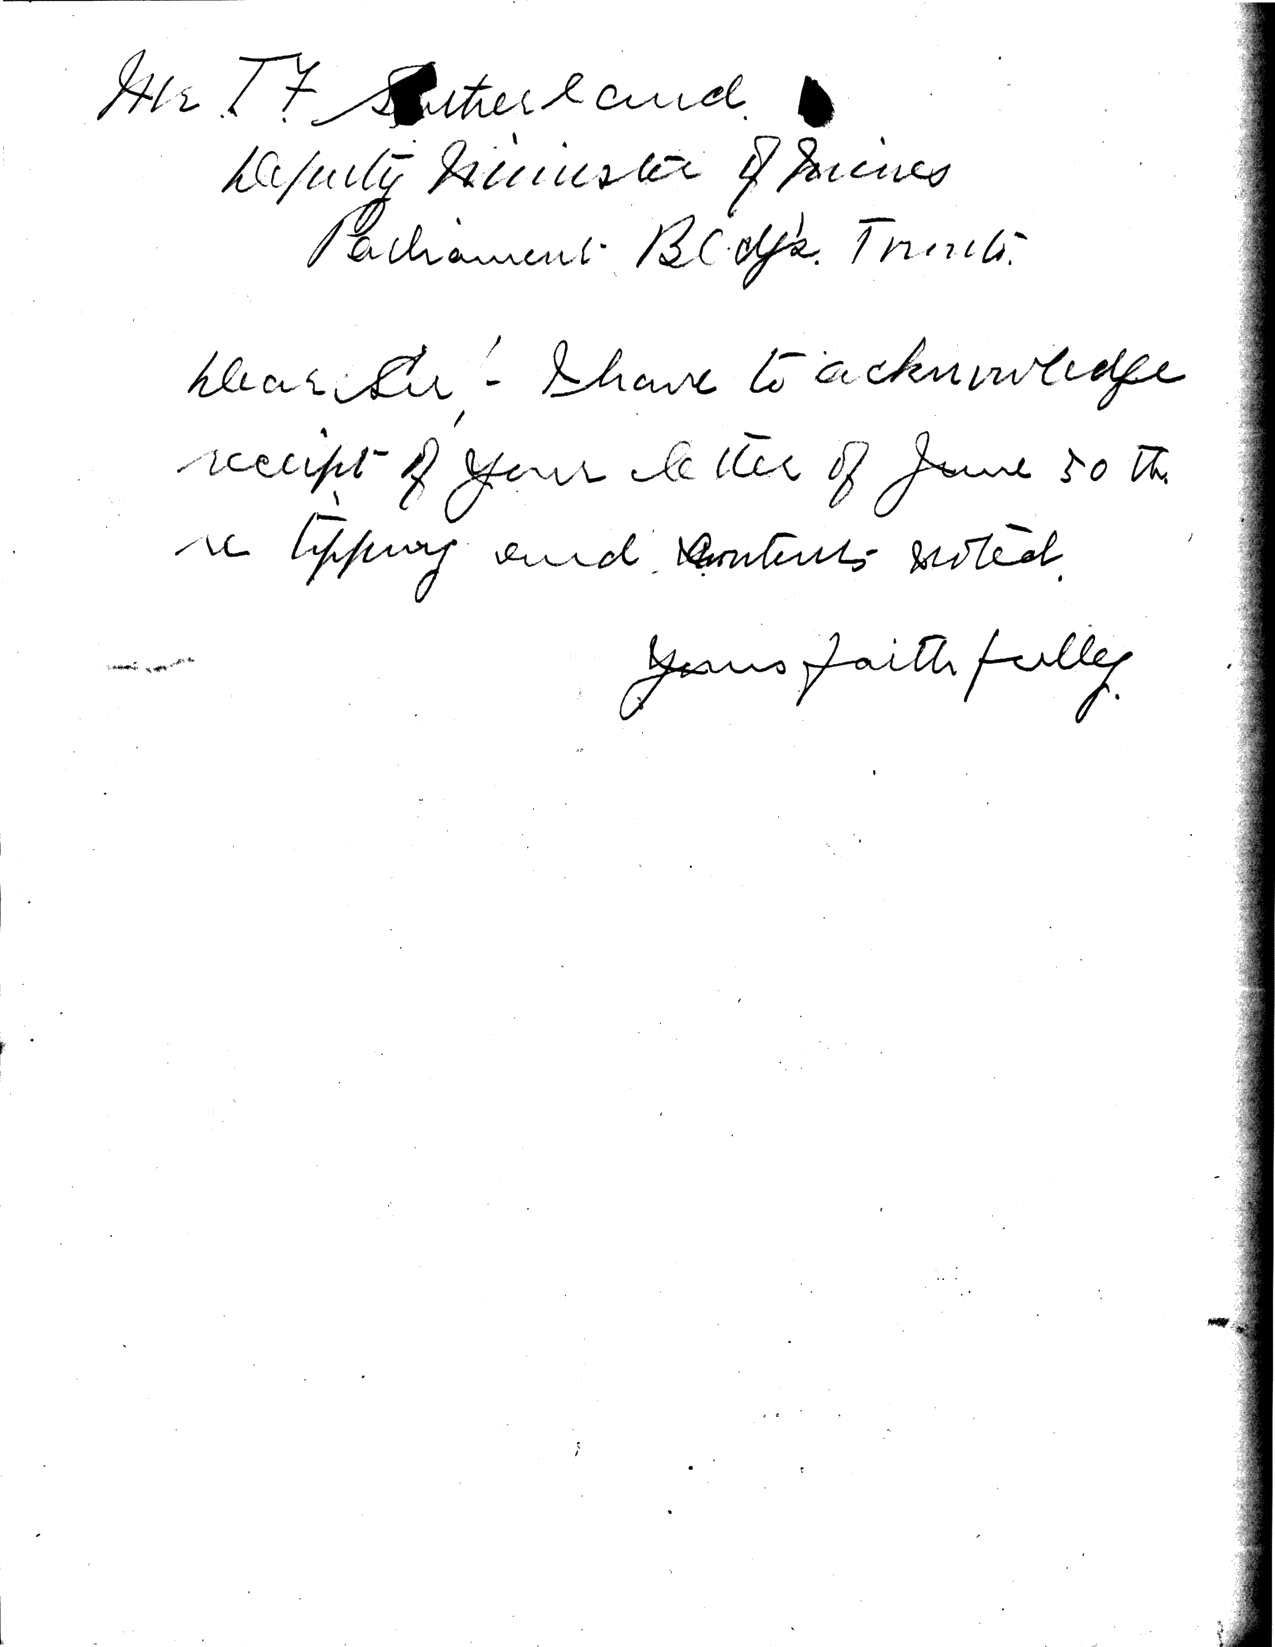 Mr T F Sutherland.
Deputy Minister of Mines
Parliament Bldgs. Toronto.
Dear Sir! - I have to acknowledge
receipt of your letter of June 30 th.
re tipping and contents noted.
Yours faithfully.